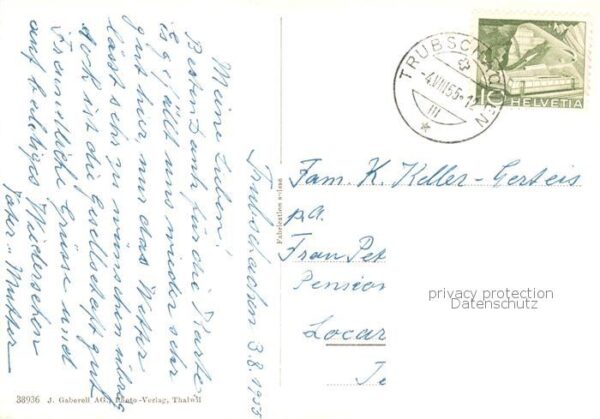 Trubschachen 3.8.1955
Meine Lieben!
Besten Dank für die Karte
Es gefällt uns wieder sehr
gut hier, nur das Wetter
lässt sehr zu wünschen übrig
Auch ist die Gesellschaft gut
Freundliche Grüsse und
auf baldiges Wiedersehen
Vater u. Mutter
Fam. K. Keller-Gerteis
p.a.
Frau Pet
Pension
Locar
Te
TRUBSCHACHEN
-4.VIII.55-1
HELVETIA
Fabrication suisse
38936 J. Gaberell AG., Photo-Verlag, Thalwil
privacy protection
Datenschutz